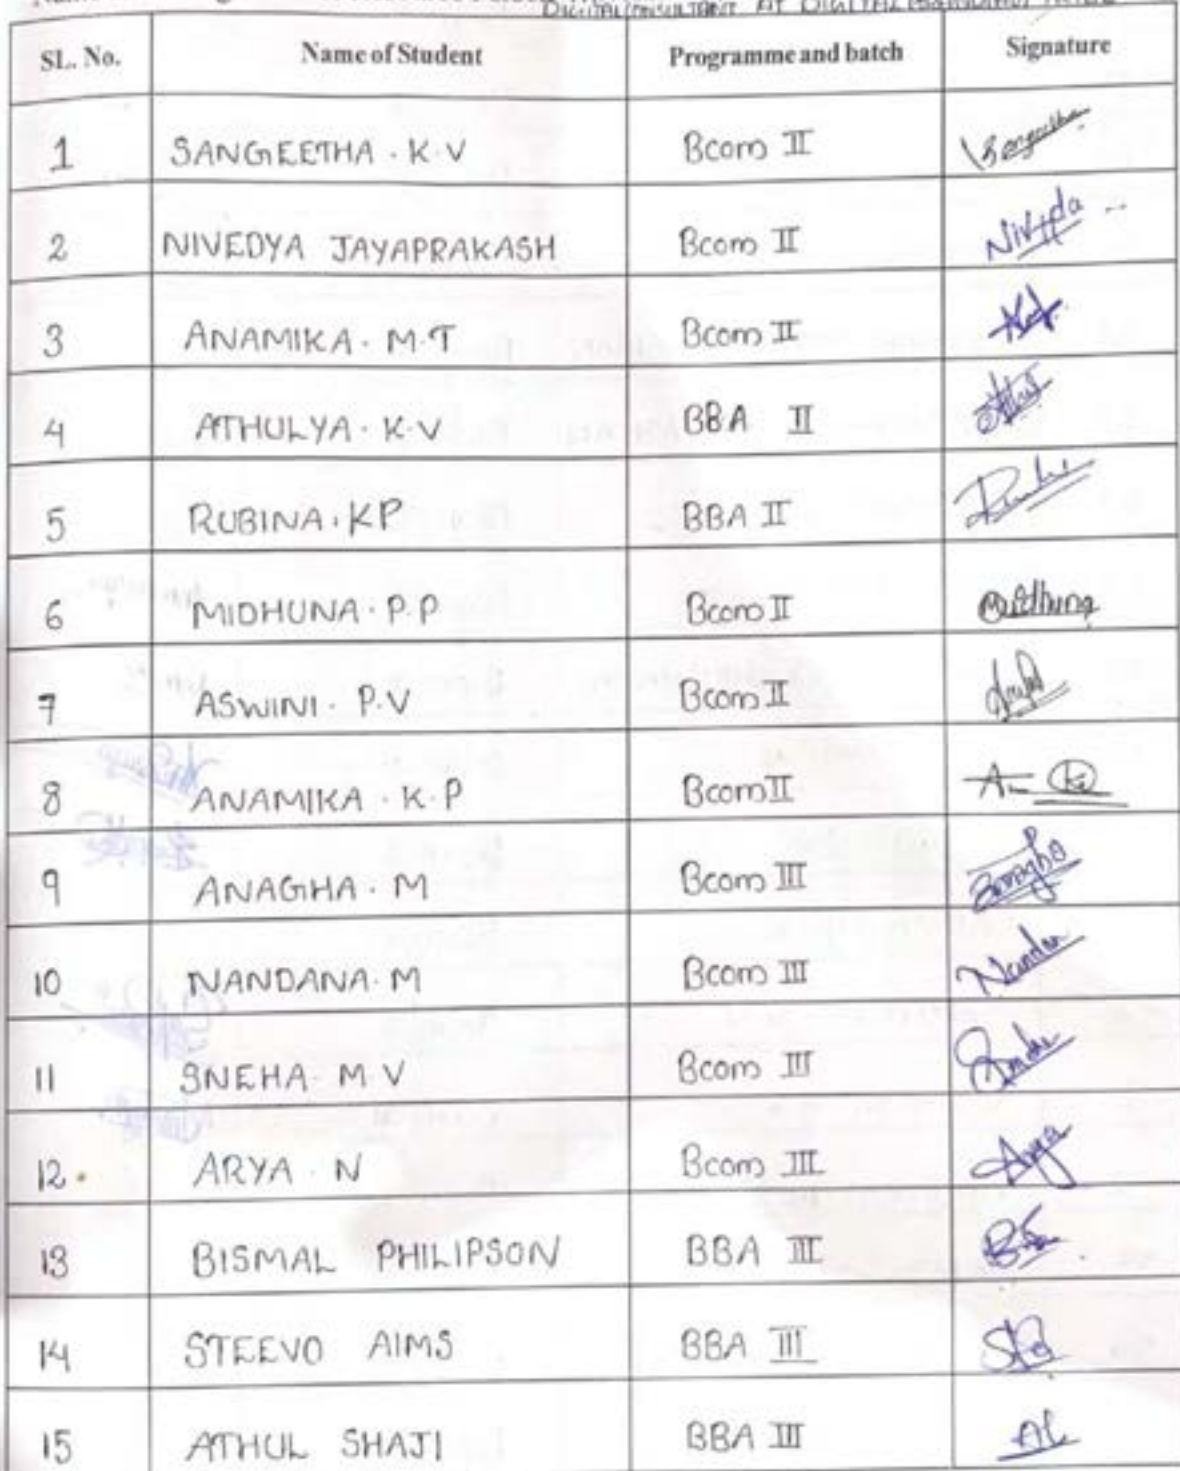 DIGITAL CONSULTANT AT DIGITAL
SL. No. Name of Student Programme and batch Signature
1 SANGEETHA . K.V Bcom II Sangeetha
2 NIVEDYA JAYAPRAKASH Bcom II
3 ANAMIKA . M.T Bcom II
4 ATHULYA . K.V BBA II
5 RUBINA . KP BBA II
6 MIDHUNA . P.P Bcom II Midhuna
7 ASWINI . P.V Bcom II
8 ANAMIKA . K.P Bcom II
9 ANAGHA . M Bcom III Anagha
10 NANDANA . M Bcom III
11 SNEHA M V Bcom III
12 ARYA . N Bcom III Arya
13 BISMAL PHILIPSON BBA III
14 STEEVO AIMS BBA III
15 ATHUL SHAJI BBA III